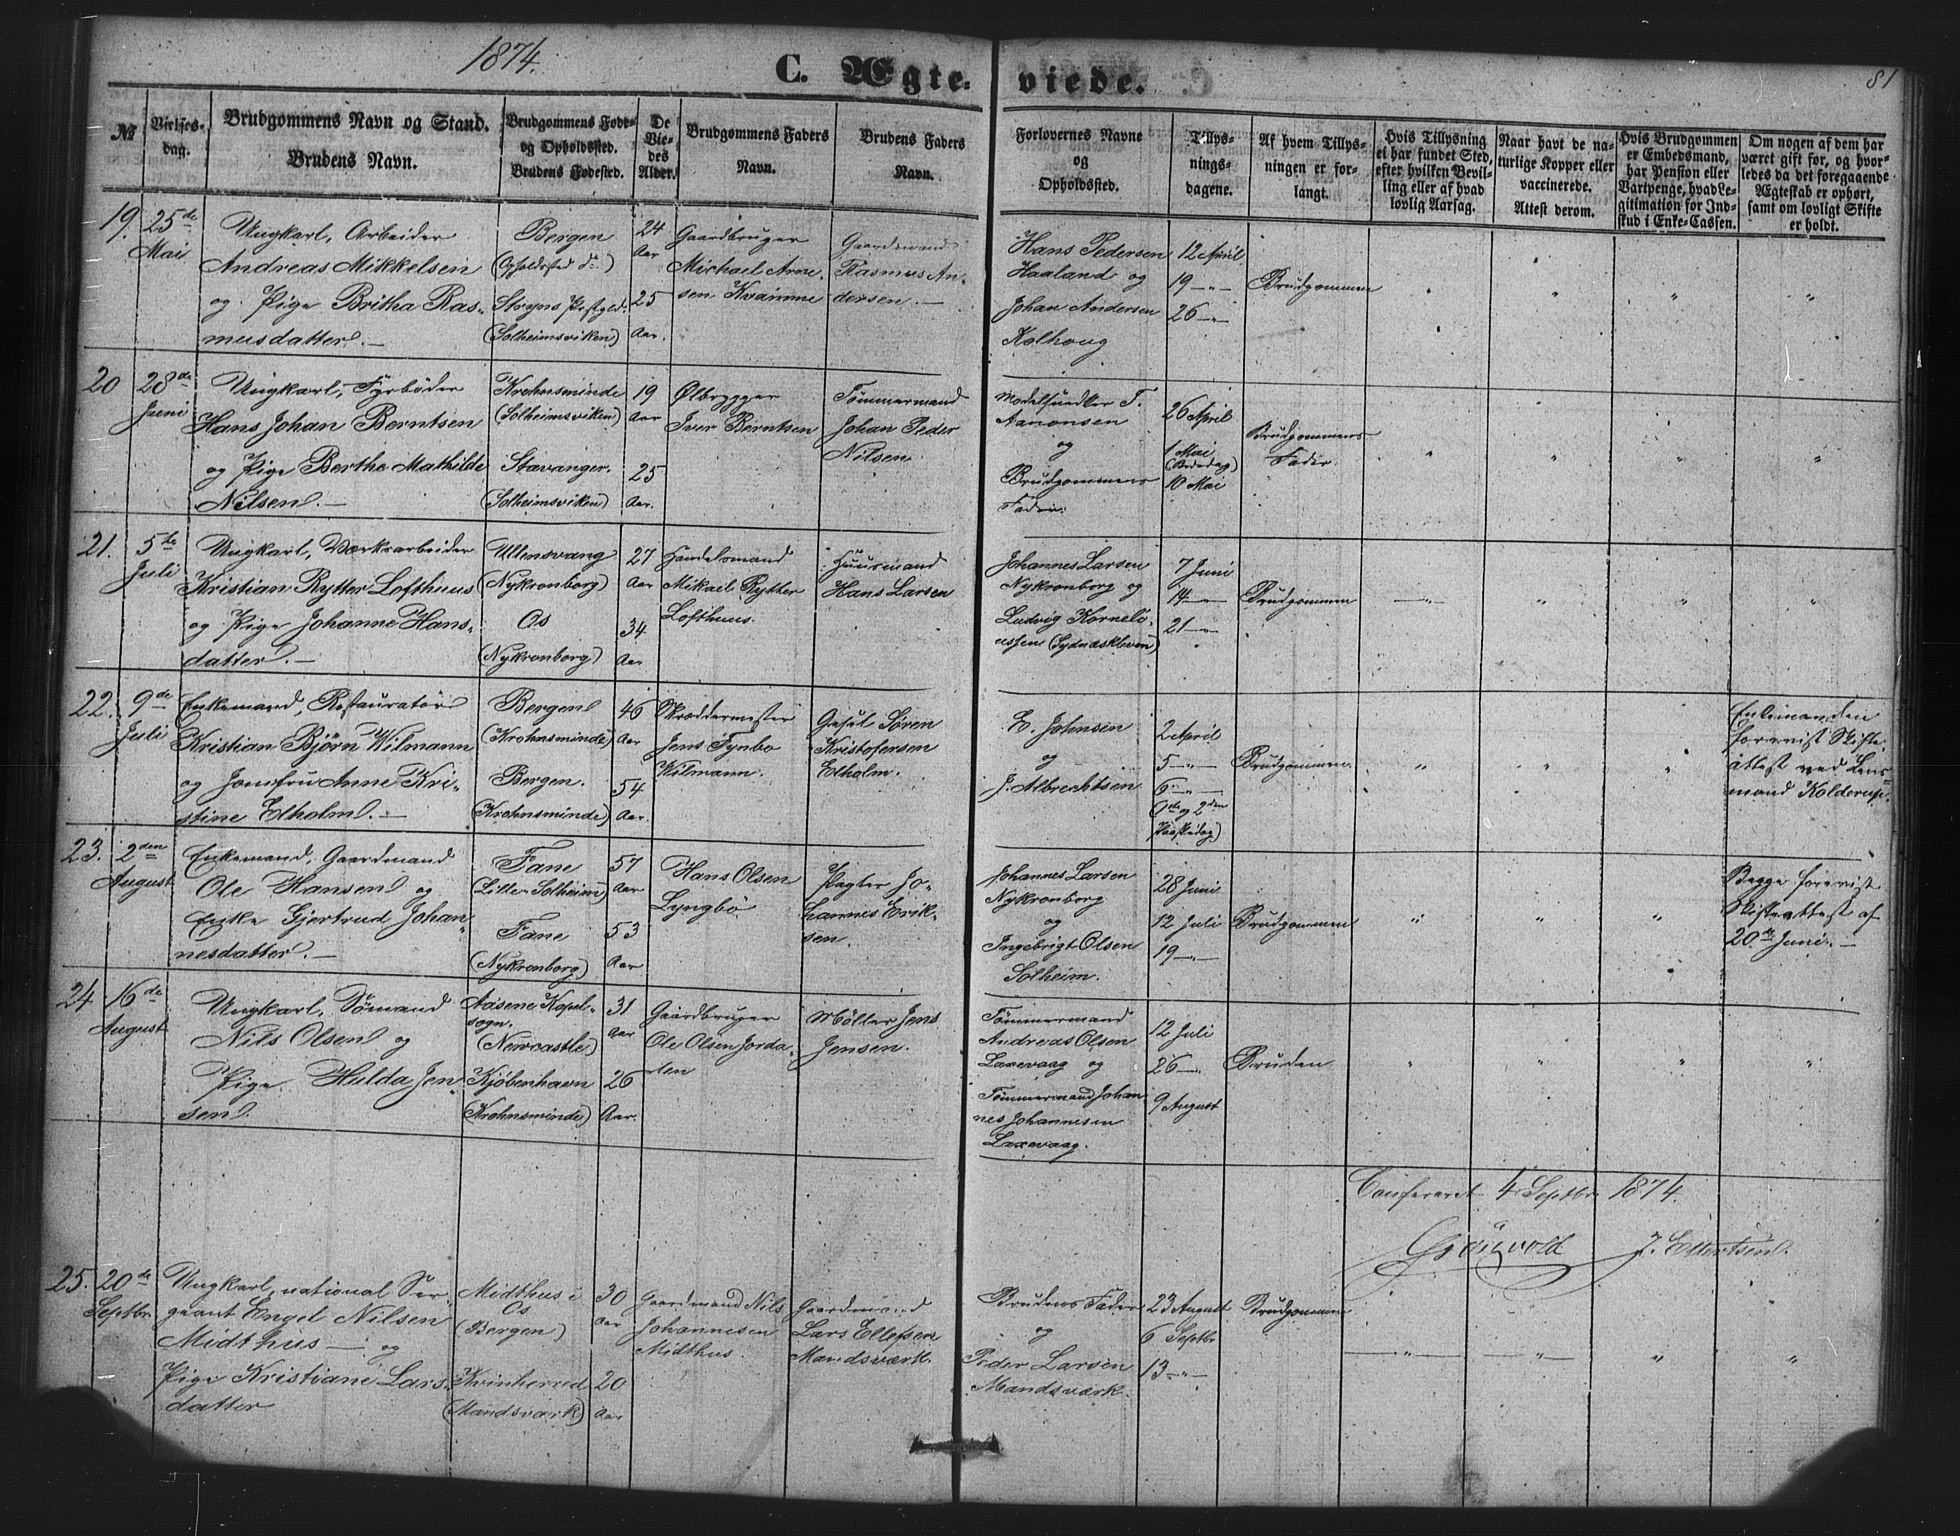 1874.
C. Ægteviede.
81
№
Vielses-
dag.
Brudgommens Navn og Stand.
Brudens Navn.
Brudgommens Føde-
og Opholdssted.
Brudens Fødested.
De
Vie-
des
Alder.
Brudgommens Faders
Navn.
Brudens Faders
Navn.
Forlovernes Navne
og
Opholdssted.
Tillys-
nings-
dagene.
Af hvem Tillys-
ningen er for-
langt.
Hvis Tillysning
ei har fundet Sted,
efter hvilken Bevil-
ling eller af hvad
lovlig Aarsag.
Naar havt de na-
turlige Kopper eller
vaccinerede.
Attest derom.
Hvis Brudgommen
er Embedsmand,
har Pension eller
Vartpenge, hvad Le-
gitimation for Ind-
skud i Enke-Cassen.
Om nogen af dem har
været gift før, og hvor-
ledes da det foregaaende
Ægteskab er ophørt,
samt om lovligt Skifte
er holdt.
19.
25de
Mai
Ungkarl, Arbeider
Andreas Mikkelsen
og Pige Britha Ras-
musdatter. —
Bergen
(Opholdsted do)
Stryns Pr̃stgeld.
(Solheimsviken)
24
Aar
25
Aar.
Gaardbruger
Michael Arne-
sen Kvamme
Gaardmand
Rasmus An-
dersen. —
Hans Pedersen
Haaland og
Johan Andersen
Kolhoug
12 April
19 — " —
26 — " —
Brudgommen
20
28de
Juni
Ungkarl, Fyrbøder
Hans Johan Berntsen
og Pige Berthe Mathilde
Nilsen. —
Krohnsminde
(Solheimsviken)
Stavanger.
(Solheimsviken)
19
Aar
25
Aar.
Ølbrygger
Iver Berntsen
Tømmermand
Johan Peder
Nilsen
Modelsnedker T.
Aanonsen
og
Brudgommens
Fader.
26 April
1 Mai
(Bededag)
10 Mai
Brudgommens
Fader.
21.
5te
Juli
Ungkarl, Værksarbeider
Kristian Rytter Lofthuus
og Pige Johanne Hans-
datter. —
Ullensvang
(Nykronborg)
Os
(Nykronborg)
27
Aar
34
Aar.
Handelsmand
Mikael Rytter
Lofthuus.
Huusmand
Hans Larsen
Johannes Larsen
Nykronborg og
Ludvig Korneli-
ussen (Sydneskleven)
7 Juni
14 — " —
21 — " —
Brudgommen
22.
9de
Juli
Enkemand, Restauratør
Kristian Bjørn Wilmann
og Jomfru Anne Kri-
stine Elholm. —
Bergen
(Krohnsminde)
Bergen.
(Krohnsminde)
46
Aar
54
Aar.
Skræddermester
Jens Fynbo
Wilmann.
Søren
Kristofersen
Elholm.
E. Johnsen
og
J. Albrechtsen
2 April
5 — " —
6 — " —
(1ste og 2den
Paaskedag)
Brudgommen
Enkemanden
forevist Skifte-
attest ved Lens-
mand Kolderup.
23.
2den
August
Enkemand, Gaardmand
Ole Hansen og
Enke Gjertrud Johan-
nesdatter. —
Fane
(Lille-Solheim)
Fane
(Nykronborg)
57
Aar
53
Aar
Hans Olsen
Lyngbø
Pagter Jo-
hannes Erik-
sen.
Johannes Larsen
Nykronborg
og
Ingebrigt Olsen
Solheim.
28 Juni
12 Juli
19 — " —
Brudgommen
Begge forevist
Skifteattest af
20de Juni. —
24
16de
August
Ungkarl, Sømand
Nils Olsen og
Pige Hulda Jen-
sen.
Aasene Kapel-
sogn.
(Newcastle)
Kjøbenhavn
(Krohnsminde)
31
Aar
26
Aar.
Gaardbruger
Ole Olsen Jorda-
len
Møller Jens
Jensen.
Tømmermand
Andreas Olsen
Laxevaag og
Tømmermand Johan-
nes Johannesen
Laxevaag.
12 Juli
26 — " —
9 August
Bruden
Confereret 4 Septbr. 1874.
J. Ellertsen.
25.
20de
Septbr.
Ungkarl, national Ser-
geant Engel Nilsen
Midthus — og
Pige Kristiane Lars-
datter
Midthus i
Os
(Bergen)
Kvinherred
(Mandsværk)
30
Aar
20
Aar
Gaardmand Nils
Johannesen
Midthus.
Gaardmand
Lars Ellefsen
Mandsværk.
Brudens Fader
og
Peder Larsen
Mandsværk.
23 August
6 Septbr
13 — " —
Brudgommen